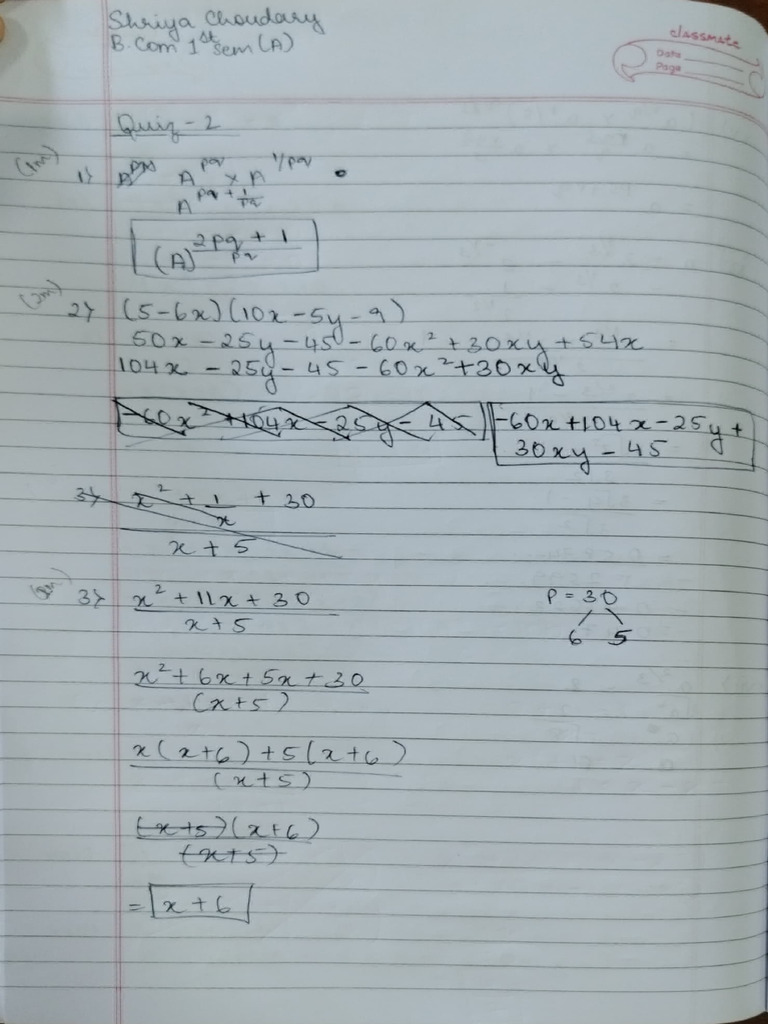 Shriya Choudary
B.Com 1st sem (A)
classmate
Date
Page
Quiz - 2
(1m)
1) A^pq × A^1/pq
A^pq + 1/pq
(A)^(2pq + 1)/pq
(2m)
2) (5-6x)(10x-5y-9)
50x - 25y - 45 - 60x² + 30xy + 54x
104x - 25y - 45 - 60x² + 30xy
-60x² + 104x - 25y - 45
-60x + 104x - 25y +
30xy - 45
3) x² + 1/x + 30
x + 5
3) x² + 11x + 30
x + 5
P = 30
6 5
x² + 6x + 5x + 30
(x+5)
x(x+6) + 5(x+6)
(x+5)
(x+5)(x+6)
(x+5)
= x + 6